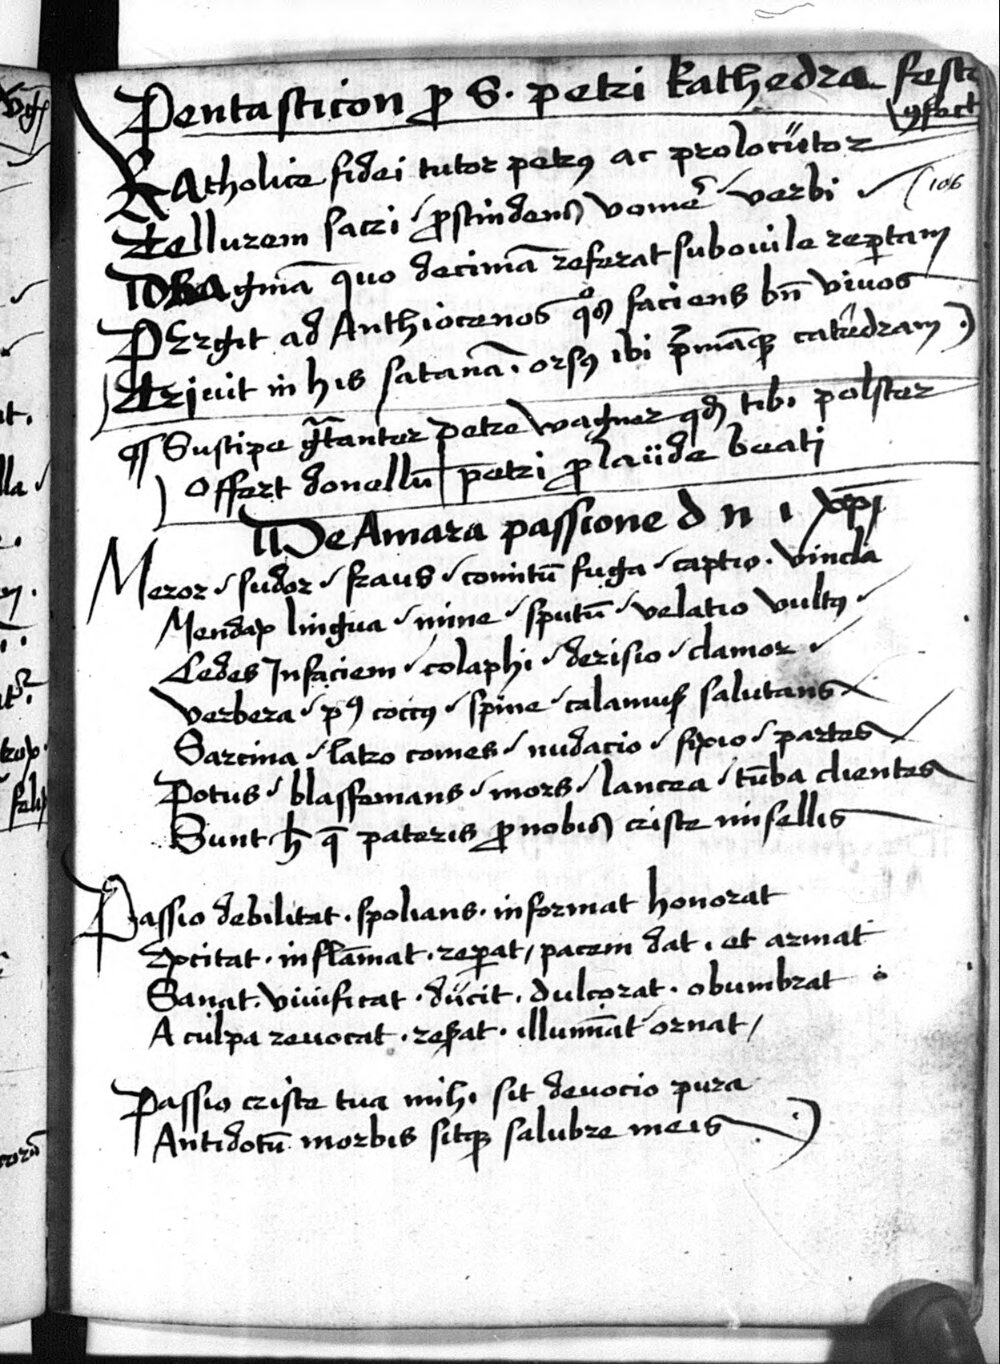 Pentasticon ꝓ S. petri kathedra festo
106
Katholice fidei tutor petrꝰ ac prolocutor
Tellurem sacri / ꝓscindens vomē / verbi /
Dragmā quo decimā referat sub ouile reꝑtam
Pergit ad Anthiocenos qͦs faciens bn̄ viuos
Triuit in his satanā . orsꝰ ibi p̄māqꝫ catedram .)
¶ Suscipe gr̄anter petre wagner qd̄ tibi polster
Offert donellū petri ꝓ laude beati
De Amara passione d n i xpi
Meror / sudor / fraus / comitū fuga / captio . vincla
Mendax lingua / mine / sputū / velatio vultꝰ /
Cedes Infaciem / colaphi / derisio / clamor /
Verbera / pꝰ coccꝰ / spine / calamus salutans
Sarcina / latro comes / nudacio / fixio / partes
Potus / blassemans / mors / lancea / tūba clientes
Sunt h̄ q̄ pateris ꝓ nobis criste misellis
Passio debilitat . spolians . informat honorat
Excitat . inflāmat . reꝑat / pacem dat . et armat
Sanat . viuificat . ducit . dulcorat . obumbrat
A culpa reuocat . reserat . illumīat ornat /
Passio criste tua mihi sit deuocio pura
Antidotū morbis sitqꝫ salubre meis